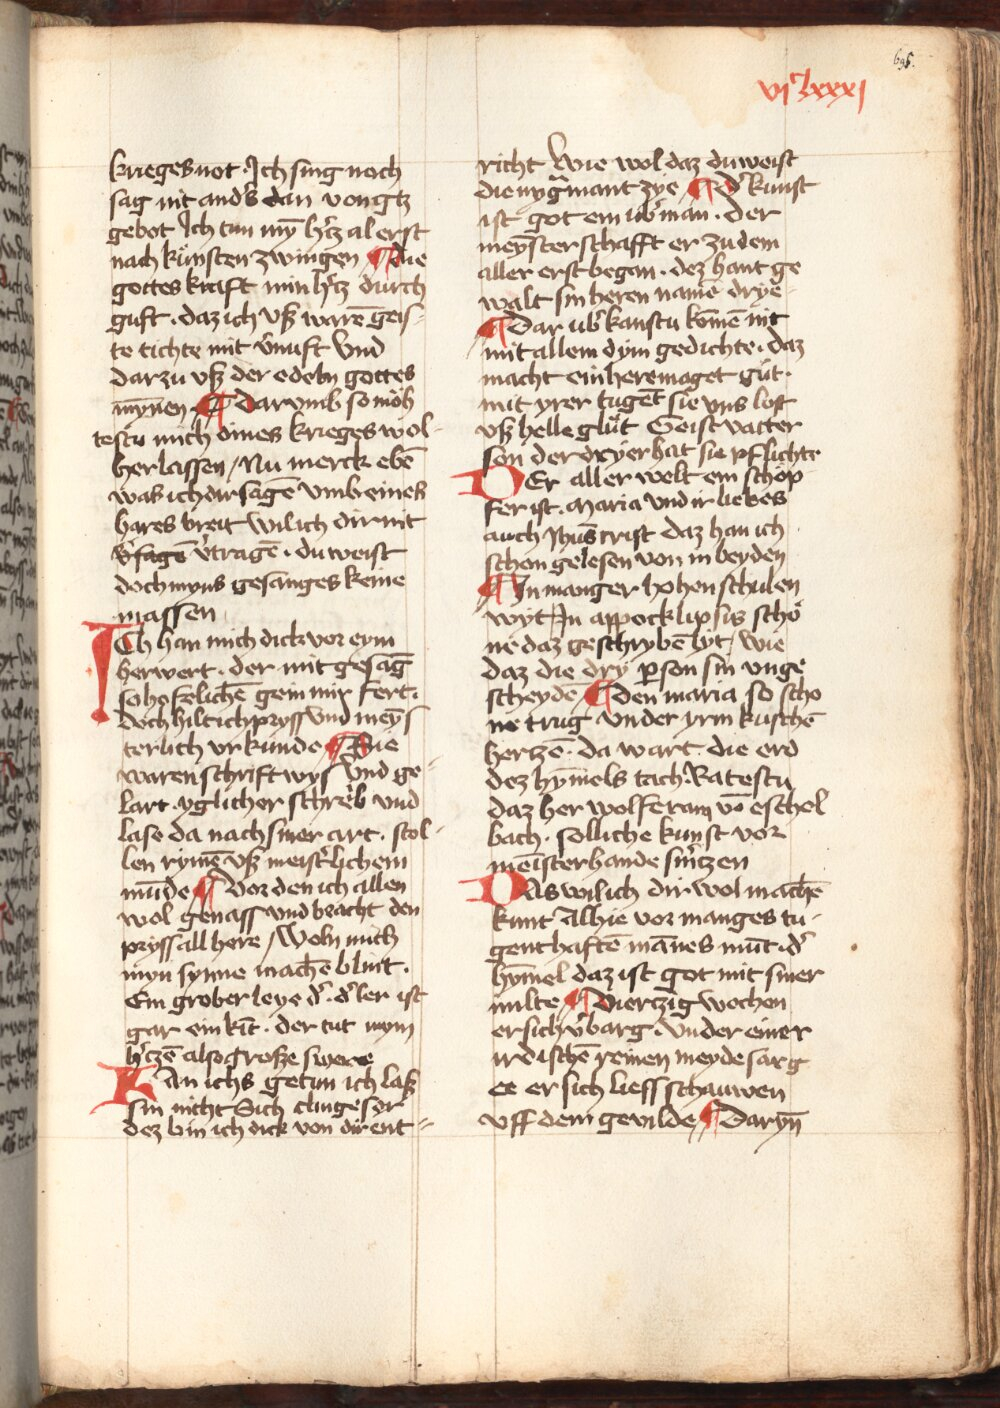 696.
vjͨ lxxxj
krieges not · Ich sing noch
sag nit and's dan von gtz
gebot Ich tun my̅ h'tz al erst
nach ku̎nsten zwingen ¶ die
gottes kraft min h'tz durch
guft · daz ich vß ware̅ geis-
te tichte mit v'nuft Vnd
dar zu vß der edeln gottes
my̅nen ¶ Dar vmb so moh
testu mich dines krieges wol-
her lassen / Nu merck ebe̅
was ich dir sage̅ vmb eines
hares breit wil ich dir nit
v'sage̅ v'trage̅ · du weist
doch myns gesanges keine
massen
Ich han mich dick vor eym
herwert · der mit gesag̅
so hofeliche̅ gein mir fert ·
doch hilt ich pryss vnd meys
terlich vrkunde ¶ Die
waren schrift wys vnd ge-
lart · yglicher schreb vnd
lase da nach siner art · stol-
len ryme̅ vß meist'lichem
mu̅de ¶ Vor den ich allen
wol genass vnd bracht den
pryss all here / Woln mich
myn synne mache̅ blint ·
Ein grober leye d' · d' ler ist
gar ein kit̅ · der tut mym
h'tze̅ also große swere
Kan ichs getun ich laß
sin nicht Sich clingesor
dez bin ich dick von dir ent-
richt Wie wol daz du weist
die nygramantzye ¶ d' kunst
ist got ein ub' man · der
meysterschafft er zu dem
aller erst began · dez hant ge
walt sin heren name̅ drye-
¶ Dar ub' kanstu kome̅ nit
mit allem dym gedichte · daz
macht ein here maget gut ·
mit yrer tuget sie vns lost
vß helle glut Geist vatter
son der dryer hat sie pflichte
Der aller welt ein schop
fer ist · Maria vnd ir liebes
auch Jhus crist daz han ich
schon gelesen von in beyden
¶ In manger hohen schulen
wyt In appocklipsis scho
ne daz geschrybe̅ lyt / wie
daz die dry pson sin vnge
scheyde̅ ¶ den maria so scho
ne trug vnder yrm kusche̅
hertze̅ · da wart die erd
dez hymels tach Ratestu
daz her wolferam vo̅ eschel
bach · solliche kunst vor
meisterhande sintzen
Das wil ich dir wol mache̅
kunt Alhie vor manges tu-
genthafte̅ ma̅nes mu̅t · d'
hy̅mel daz ist got mit siner
milte ¶ Viertzig wochen
er sich v'barg · vnder einer
irdische̅ reinen meyde sarg
ee er sich liess schauwen
vff dem gevilde ¶ Daryn̅